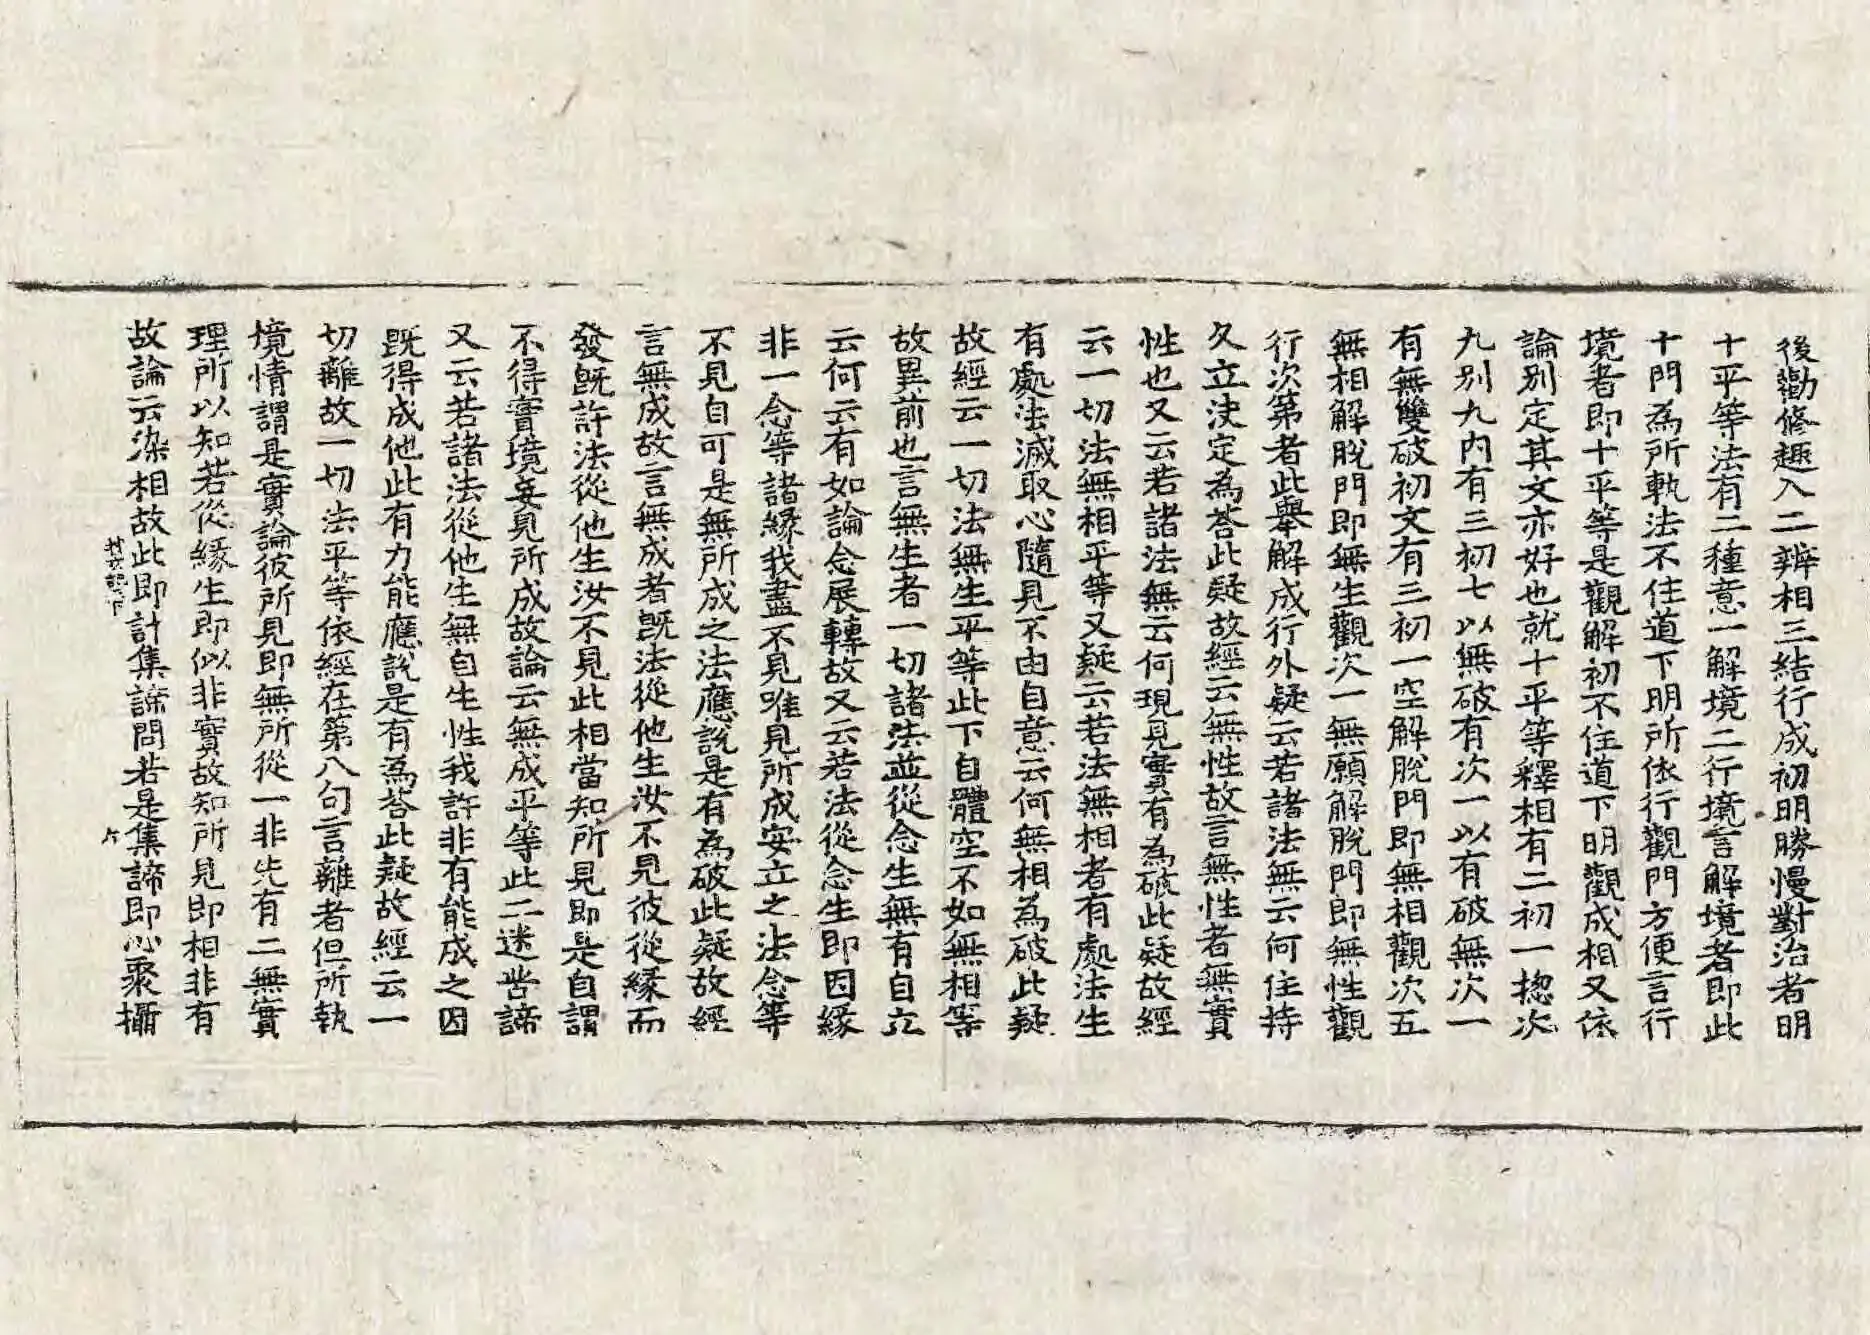 後勸修趣入二辨相三結行成初明勝慢對治者明
十平等法有二種意一解境二行境言解境者即此
十門為所軌法不住道下明所依行觀門方便言行
境者即十平等是觀解初不住道下明觀成相又依
論別定其文亦好也就十平等釋相有二初一揔次
九別九內有三初七以無破有次一以有破無次一
有無雙破初文有三初一空解脫門即無相觀次五
無相解脫門即無生觀次一無願解脫門即無性觀
行次第者此舉解成行外疑云若諸法無云何住持
久立決定為荅此疑故經云無性故言無性者無實
性也又云若諸法無云何現見實有為破此疑故經
云一切法無相平等又疑云若法無相者有處法生
有處法滅取心隨見不由自意云何無相為破此疑
故經云一切法無生平等此下自體空不如無相等
故異前也言無生者一切諸法並從念生無有自立
云何云有如論念展轉故又云若法從念生即因緣
非一念等諸緣我盡不見唯見所成安立之法念等
不見自可是無所成之法應說是有為破此疑故經
言無成故言無成者既法從他生汝不見彼從緣而
發既許法從他生汝不見此相當知所見即是自謂
不得實境妄見所成故論云無成平等此二迷苦諦
又云若諸法從他生無自生性我許非有能成之因
既得成他此有力能應說是有為荅此疑故經云一
切離故一切法平等依經在第八句言離者但所執
境情謂是實論彼所見即無所從一非先有二無實
理所以知若從緣生即似非實故知所見即相非有
故論云染相故此即計集諦問若是集諦即心聚攝